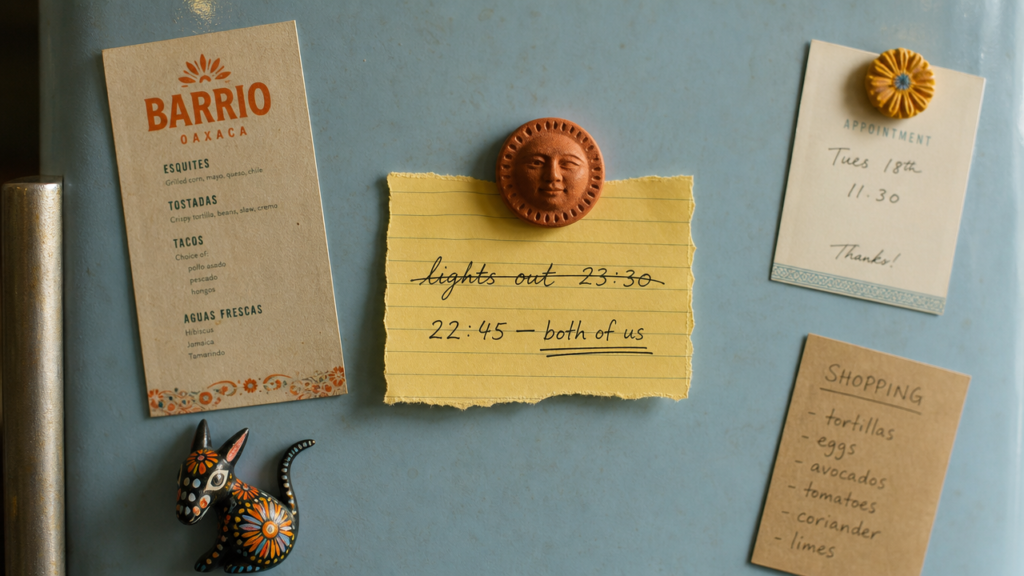 BARRIO
OAXACA
ESQUITES
Grilled corn, mayo, queso, chile
TOSTADAS
Crispy tortilla, beans, slaw, crema
TACOS
Choice of
pollo asado
pescado
hongos
AGUAS FRESCAS
Hibiscus
Jamaica
Tamarindo
lights out 23:30
22:45 — both of us
APPOINTMENT
Tues 18th
11.30
Thanks!
SHOPPING
- tortillas
- eggs
- avocados
- tomatoes
- coriander
- limes